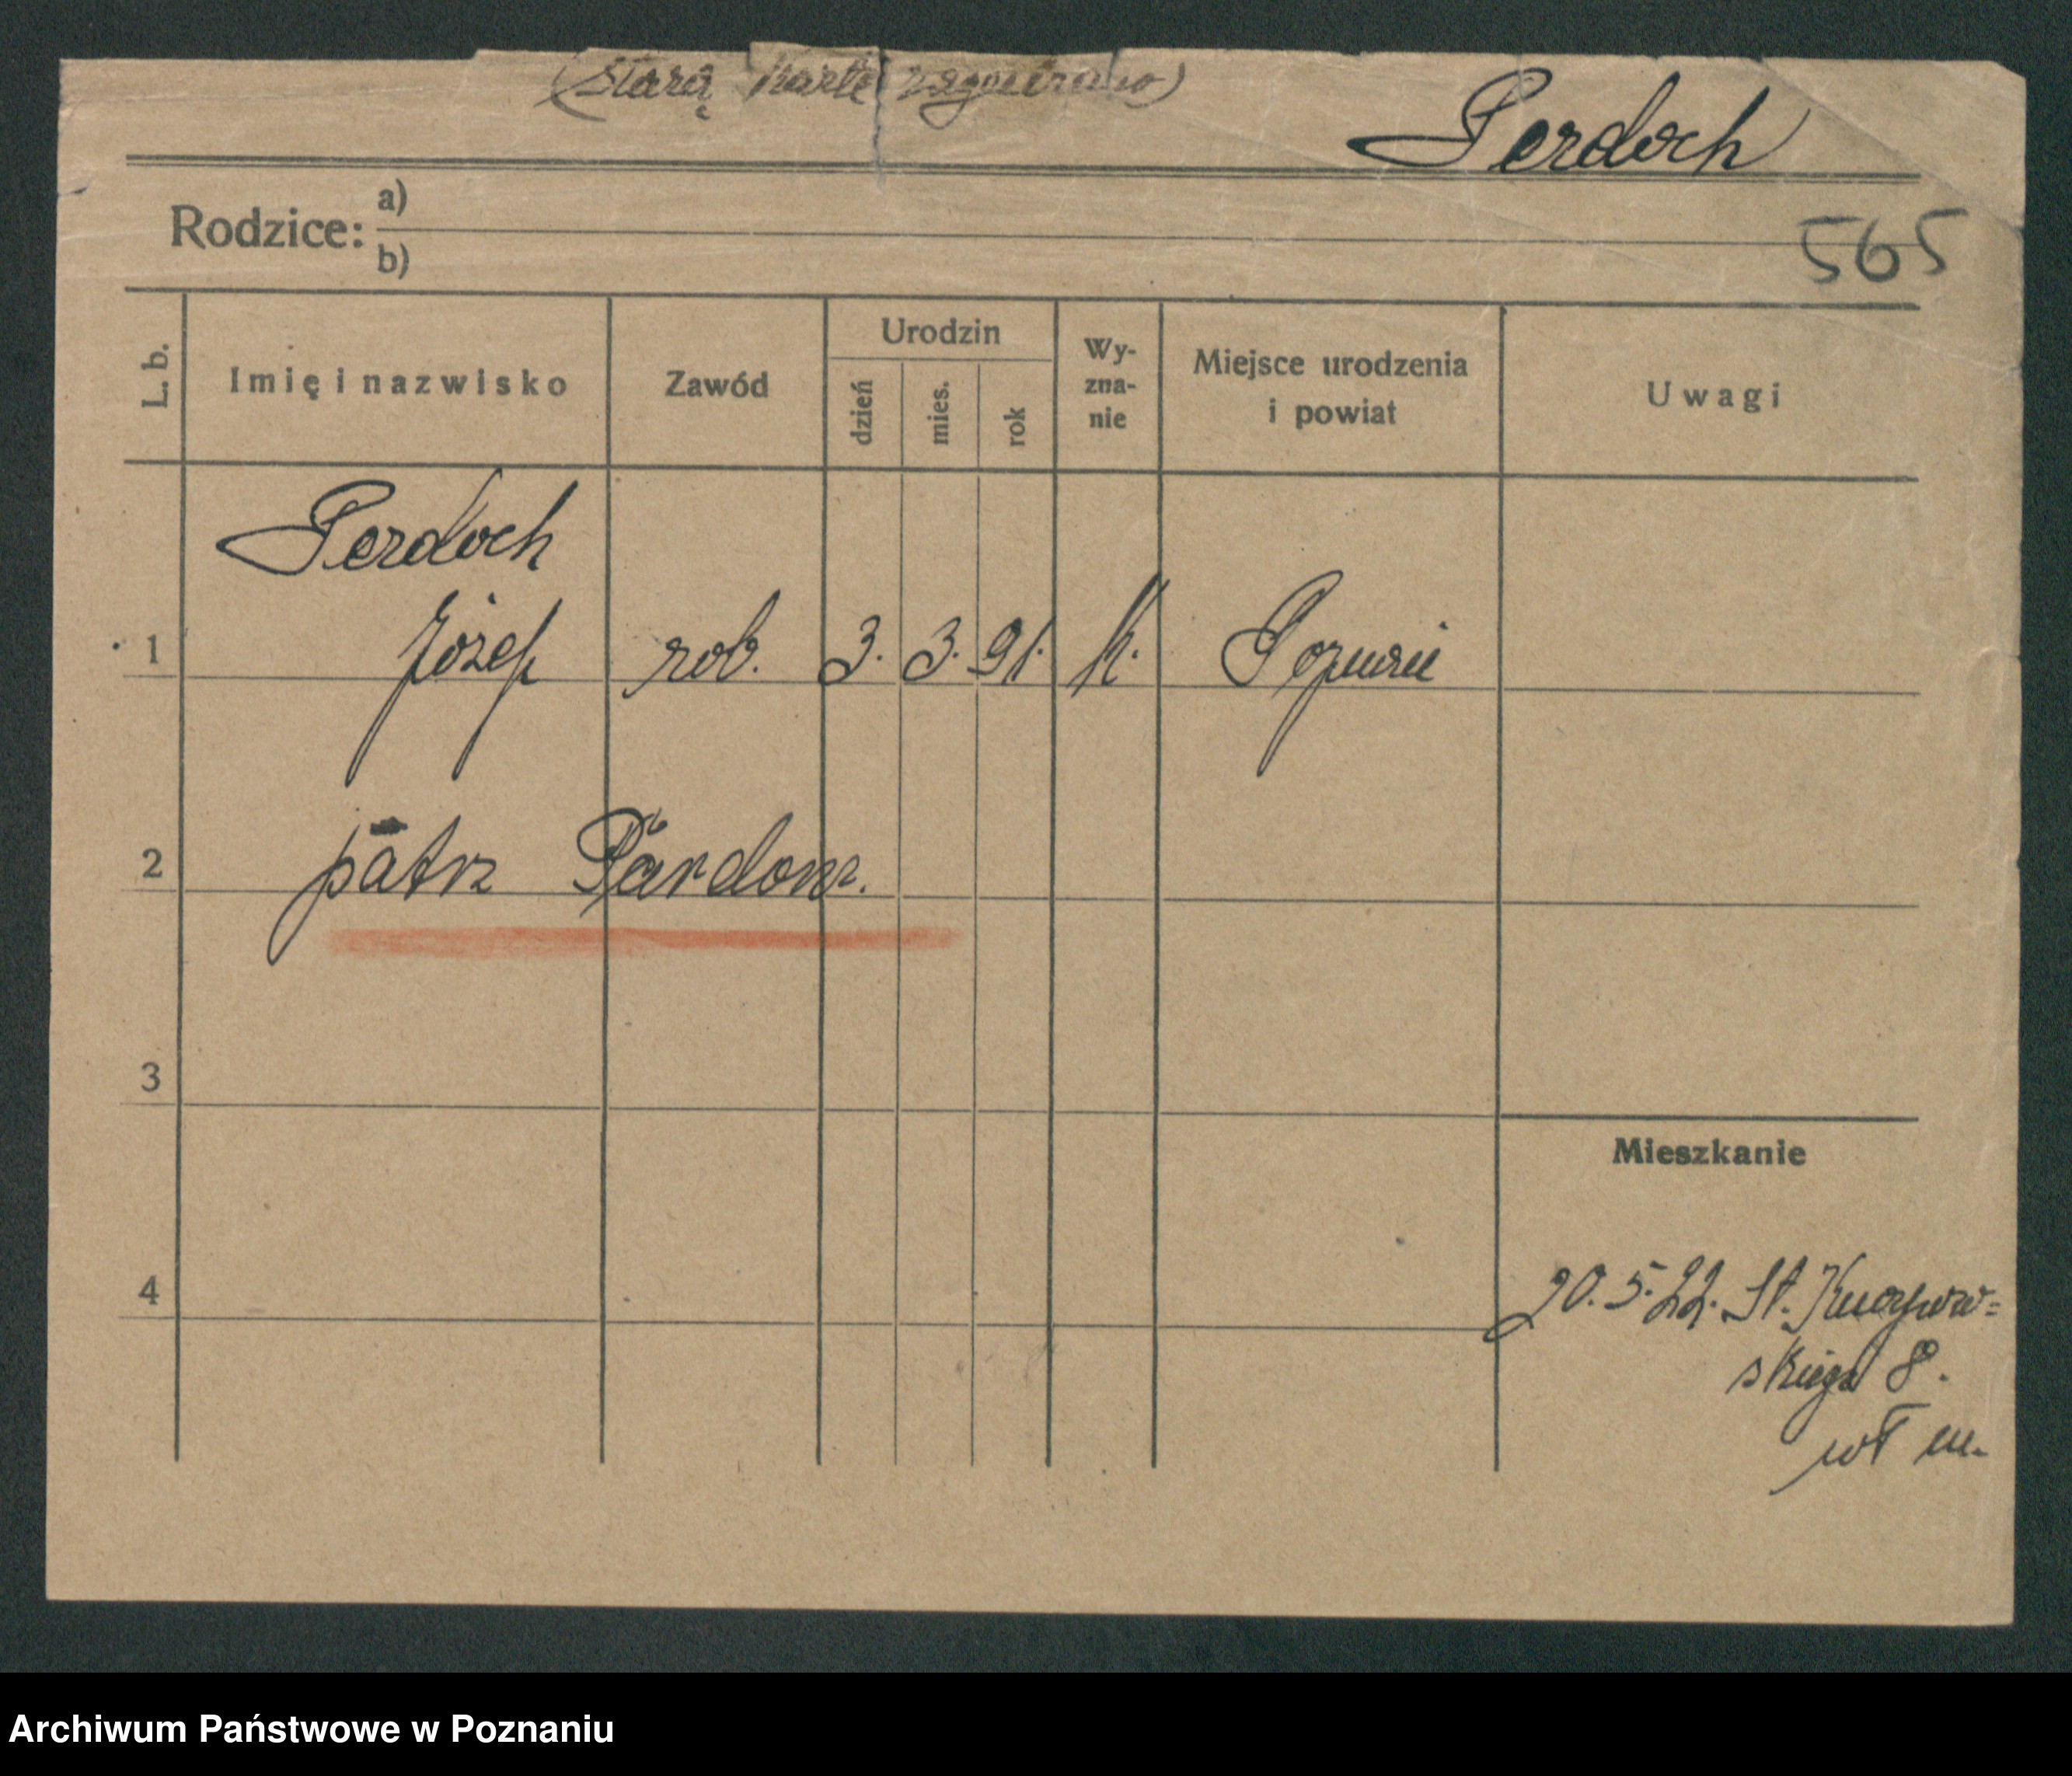 (Starą kartę zagubiono)
Perdoch
Rodzice: a)
b)
565
L. b.
Imię i nazwisko
Zawód
Urodzin
dzień
mies.
rok
Wy-
zna-
nie
Miejsce urodzenia
i powiat
Uwagi
Perdoch
1 Józef rob. 3. 3. 91. k.
2 patrz Pardon.
3
Mieszkanie
4
20. 5. 22. St.
skiego 8.
wł m.
Archiwum Państwowe w Poznaniu